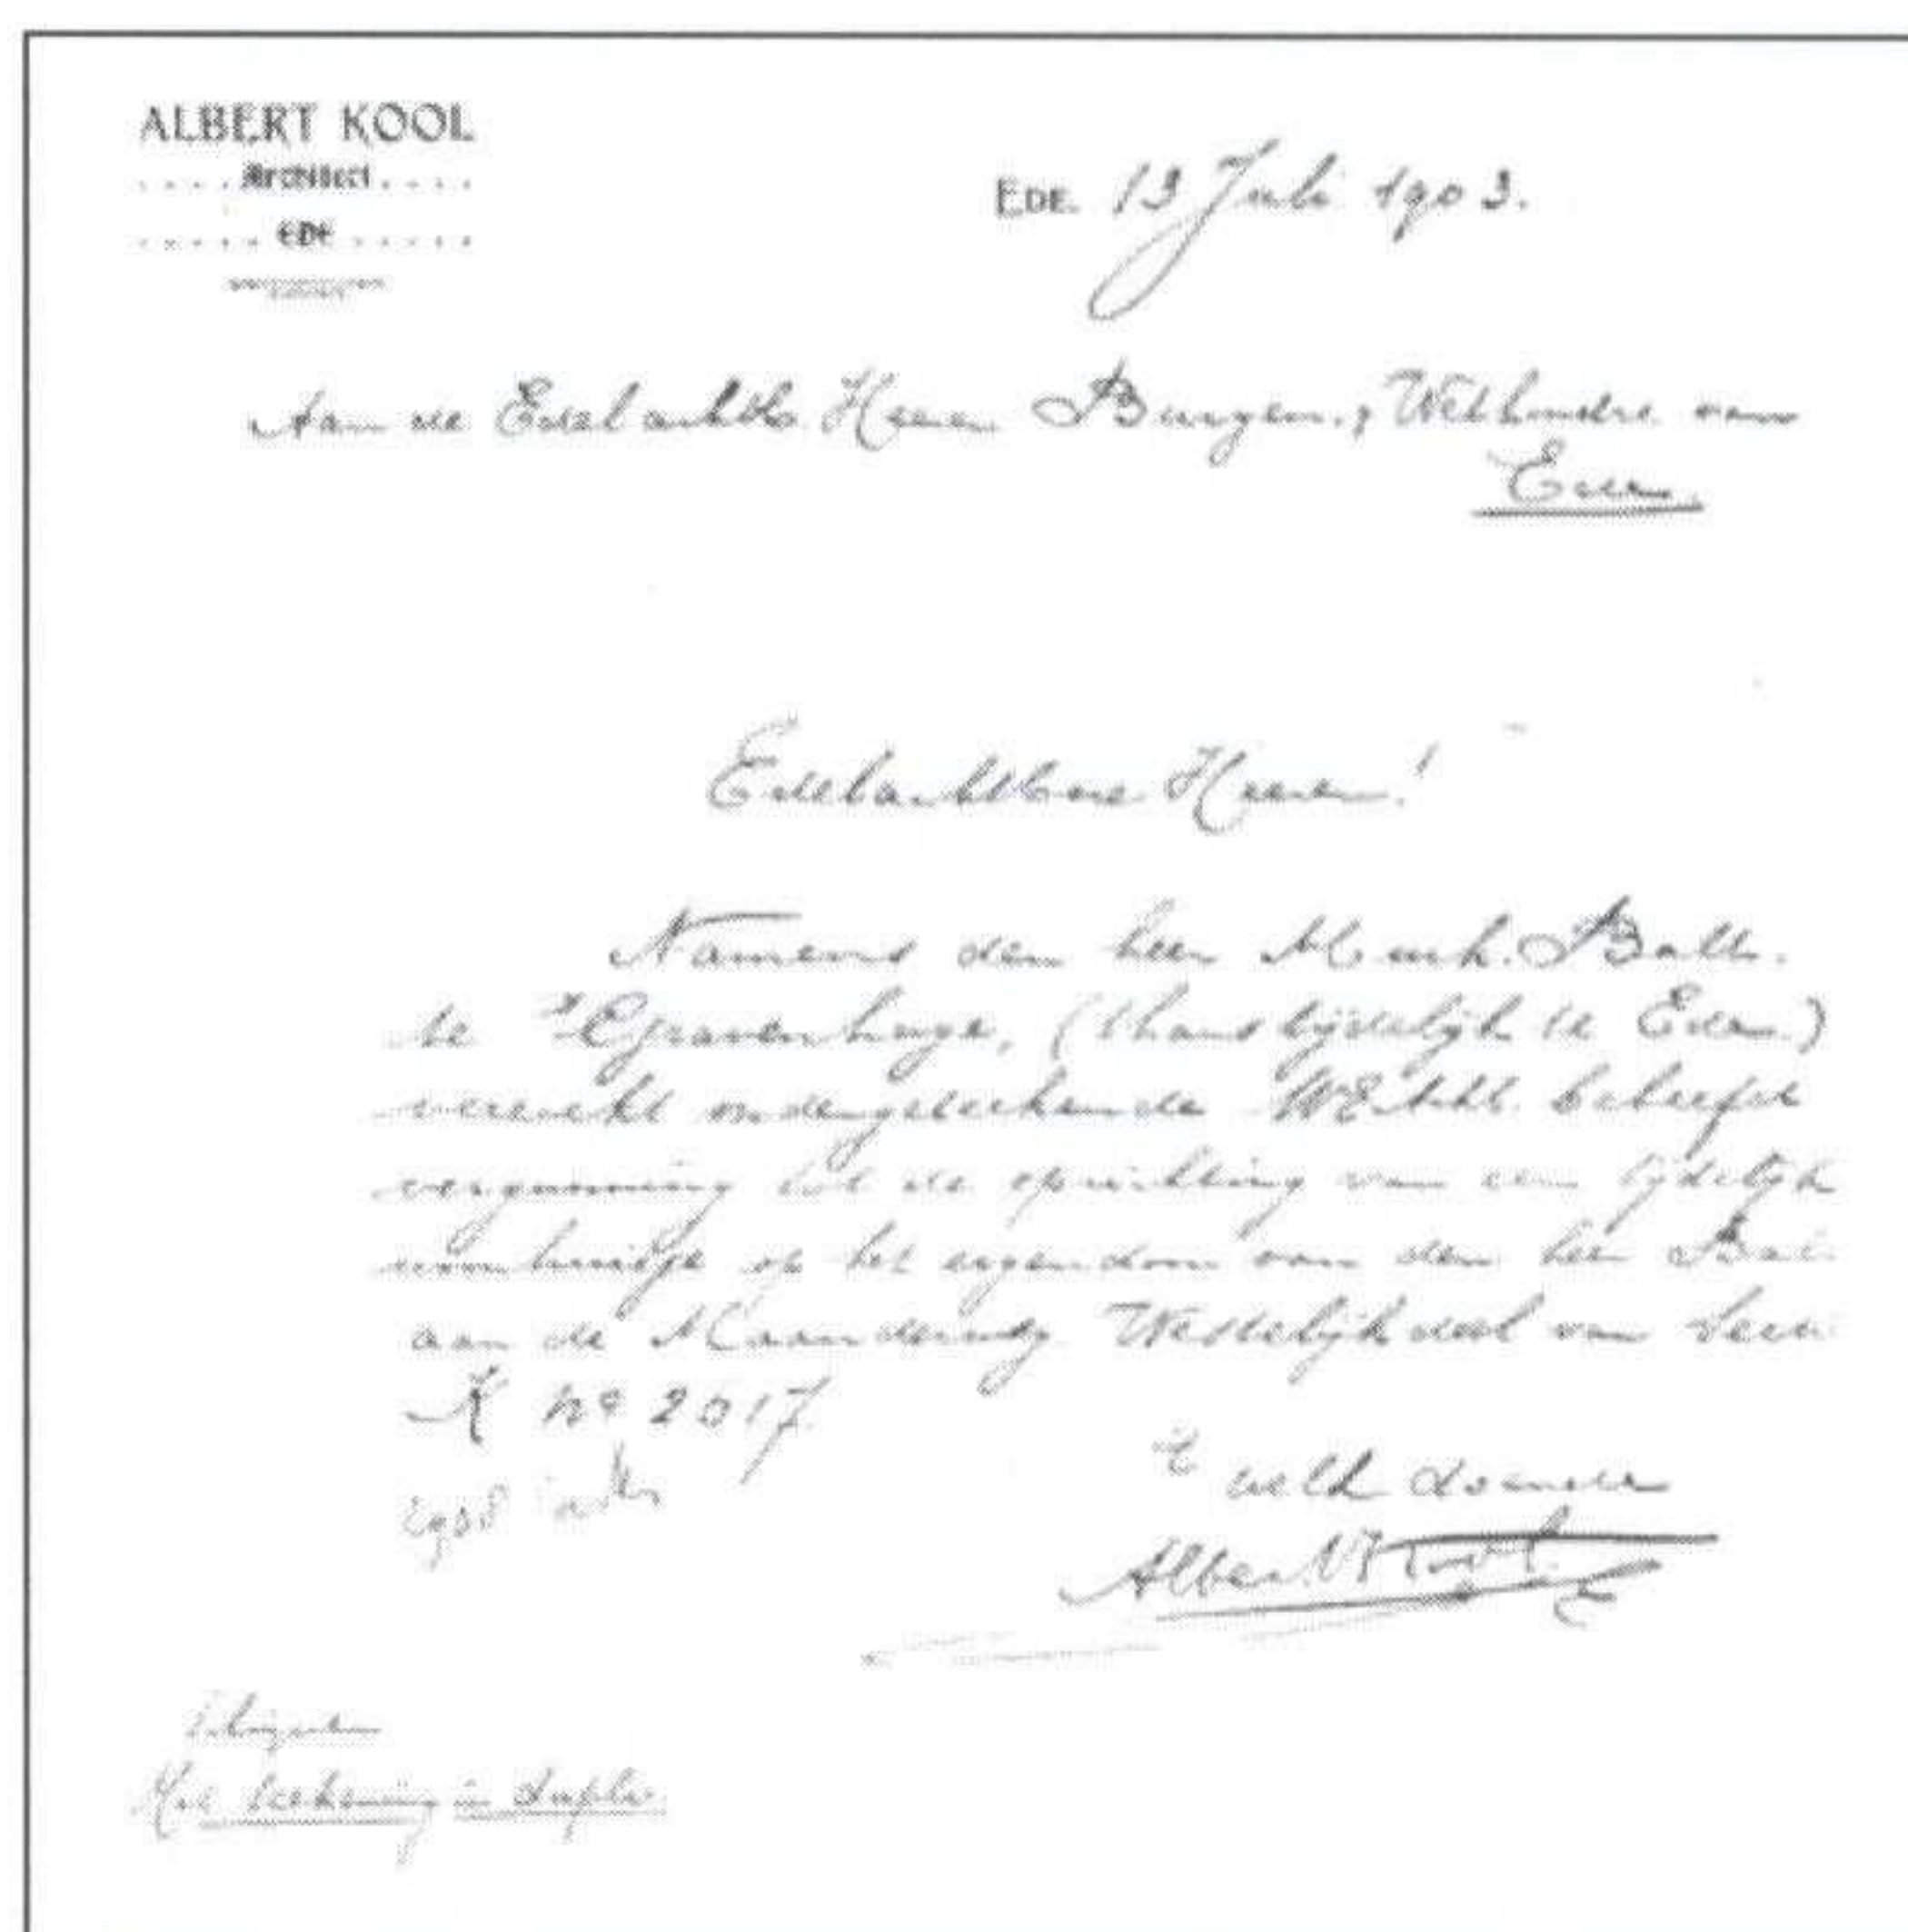 ALBERT KOOL
Architect
EDE
EDE. 13 Juli 1903.
Aan de Edelachtb. Heeren Burgem. & Wethoudrs. van
Ede.
Edelachtbare Heeren!
Namens den heer Batt.
te 'sGravenhage, (thans tijdelijk te Ede.)
verzoekt ondergeteekende WEAchtb. beleefd
vergunning tot de oprichting van een tijdelijk
woonhuisje op het eigendom van den heer
aan de Maanderweg Westelijk deel van Sect.
K No 2017.
welk doende
Albert Kool.
Met teekening in duplo.